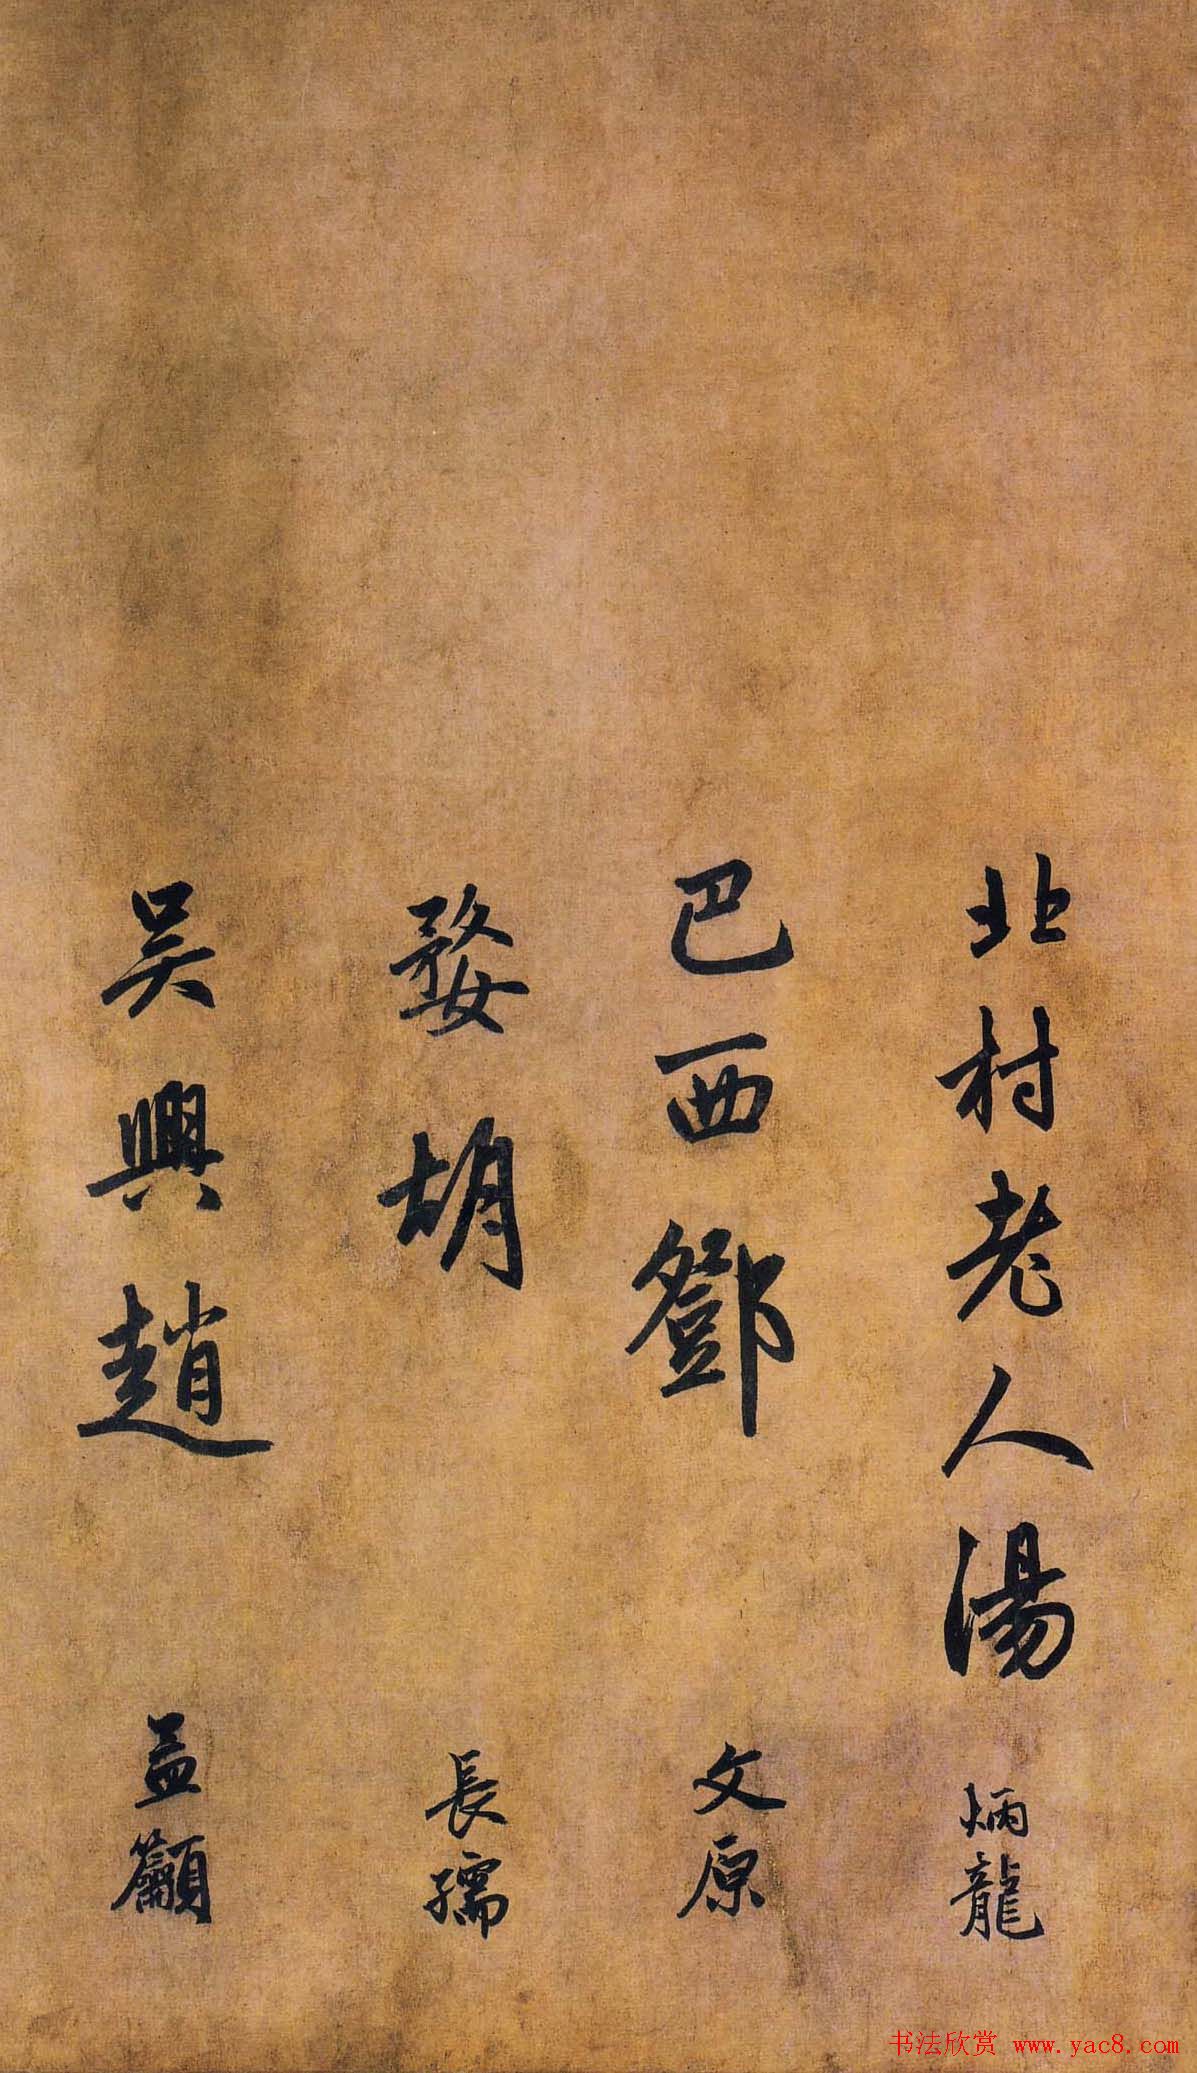 北村老人湯炳龍
巴西鄧文原
婺胡長孺
吳興趙孟籲
书法欣赏 www.yac8.com